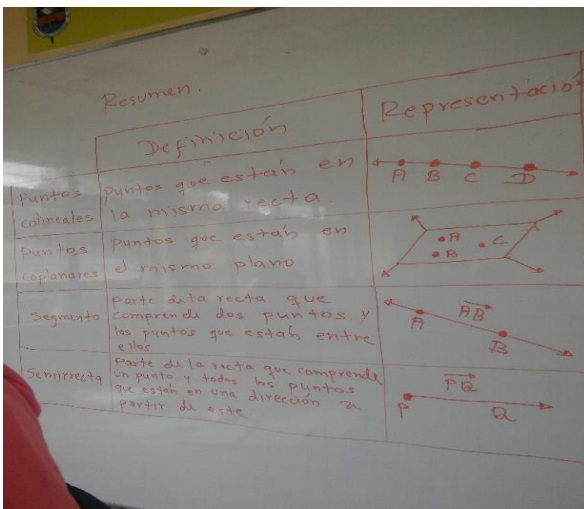 Resumen.
Definición
Representación
Puntos
colineales
Puntos que están en
la mismo recta.
A B C D
Puntos
Coplanares
Puntos que están en
el mismo plano
A
B
C
Segmento
Parte de la recta que
comprende dos puntos y
los puntos que están entre
ellos
AB
A
B
Semirrecta
Parte de la recta que comprende
un punto y todos los puntos
que estén en una dirección a
partir de este
PQ
P Q